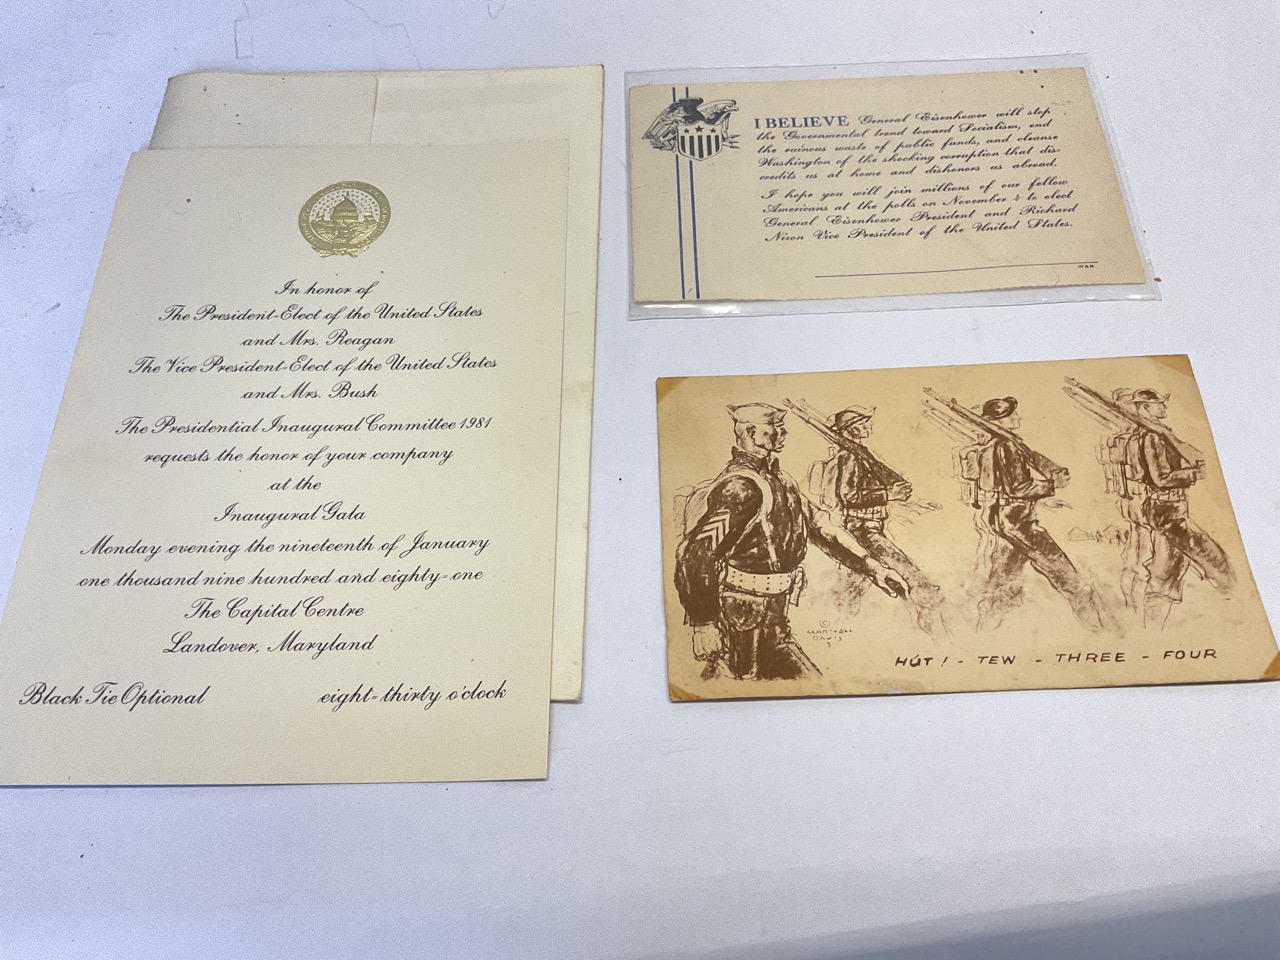 In honor of
The President-Elect of the United States
and Mrs. Reagan
The Vice President-Elect of the United States
and Mrs. Bush
The Presidential Inaugural Committee 1981
requests the honor of your company
at the
Inaugural Gala
Monday evening the nineteenth of January
one thousand nine hundred and eighty-one
The Capital Centre
Landover, Maryland
Black Tie Optional
eight-thirty o'clock
I BELIEVE General Eisenhower will stop
the Governmental trend toward Socialism, end
the ruinous waste of public funds, and cleanse
Washington of the shocking corruption that dis-
credits us at home and dishonors us abroad.
I hope you will join millions of our fellow
Americans at the polls on November 4 to elect
General Eisenhower President and Richard
Nixon Vice President of the United States.
W&B
©
MARSHALL
DAVIS
HÚT! - TEW - THREE - FOUR